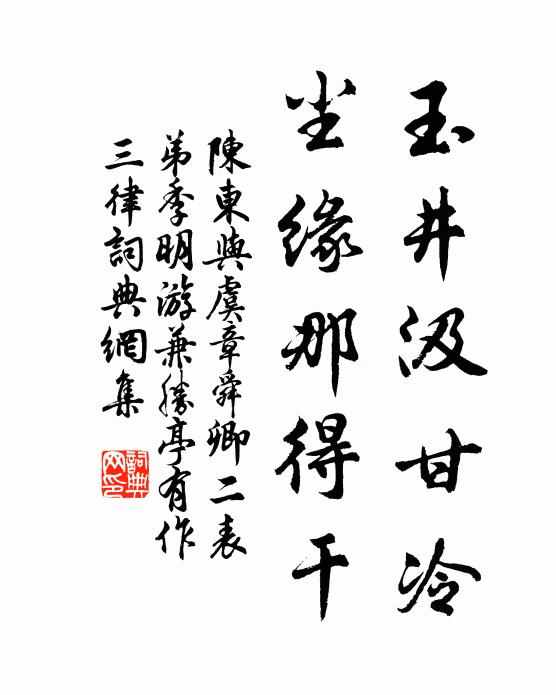 玉井汲甘冷
尘缘那得干
陳東與虞章舜卿二表
弟季明游兼勝亭有作
三律詞典網集
詞典网印